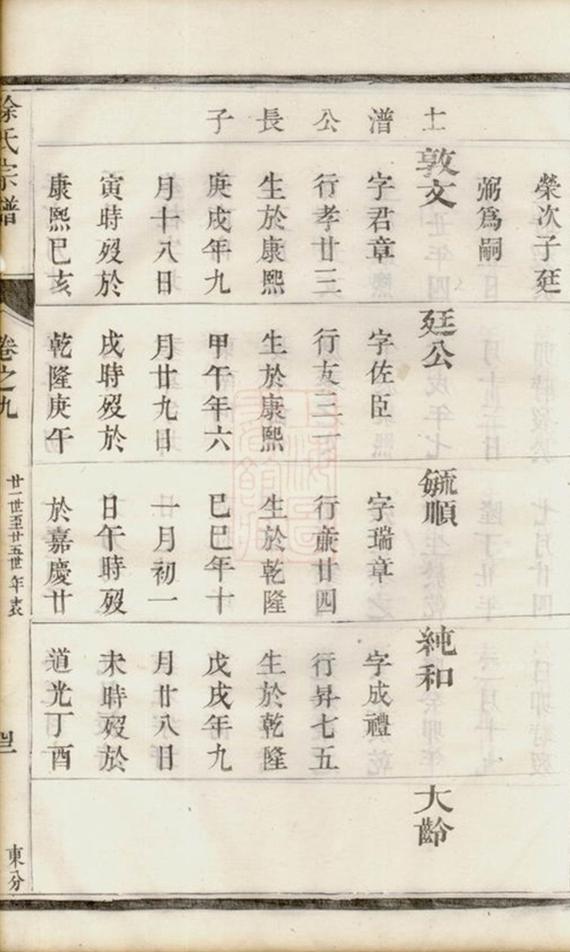 士潽公長子
榮次子廷
弼爲嗣
敦文
字君章
行孝廿三
生於康熙
庚戌年九
月十八日
寅時歿於
康熙己亥
廷公
字佐臣
行友三二
生於康熙
甲午年六
月廿九日
戌時歿於
乾隆庚午
毓順
字瑞章
行廿四
生於乾隆
己巳年十
一月初一
日午時歿
於嘉慶廿
純和
字成禮
行昇七五
生於乾隆
戊戌年九
月廿八日
未時歿於
道光丁酉
大齡
徐氏宗譜
卷之九
廿一世至廿五世年表
東分